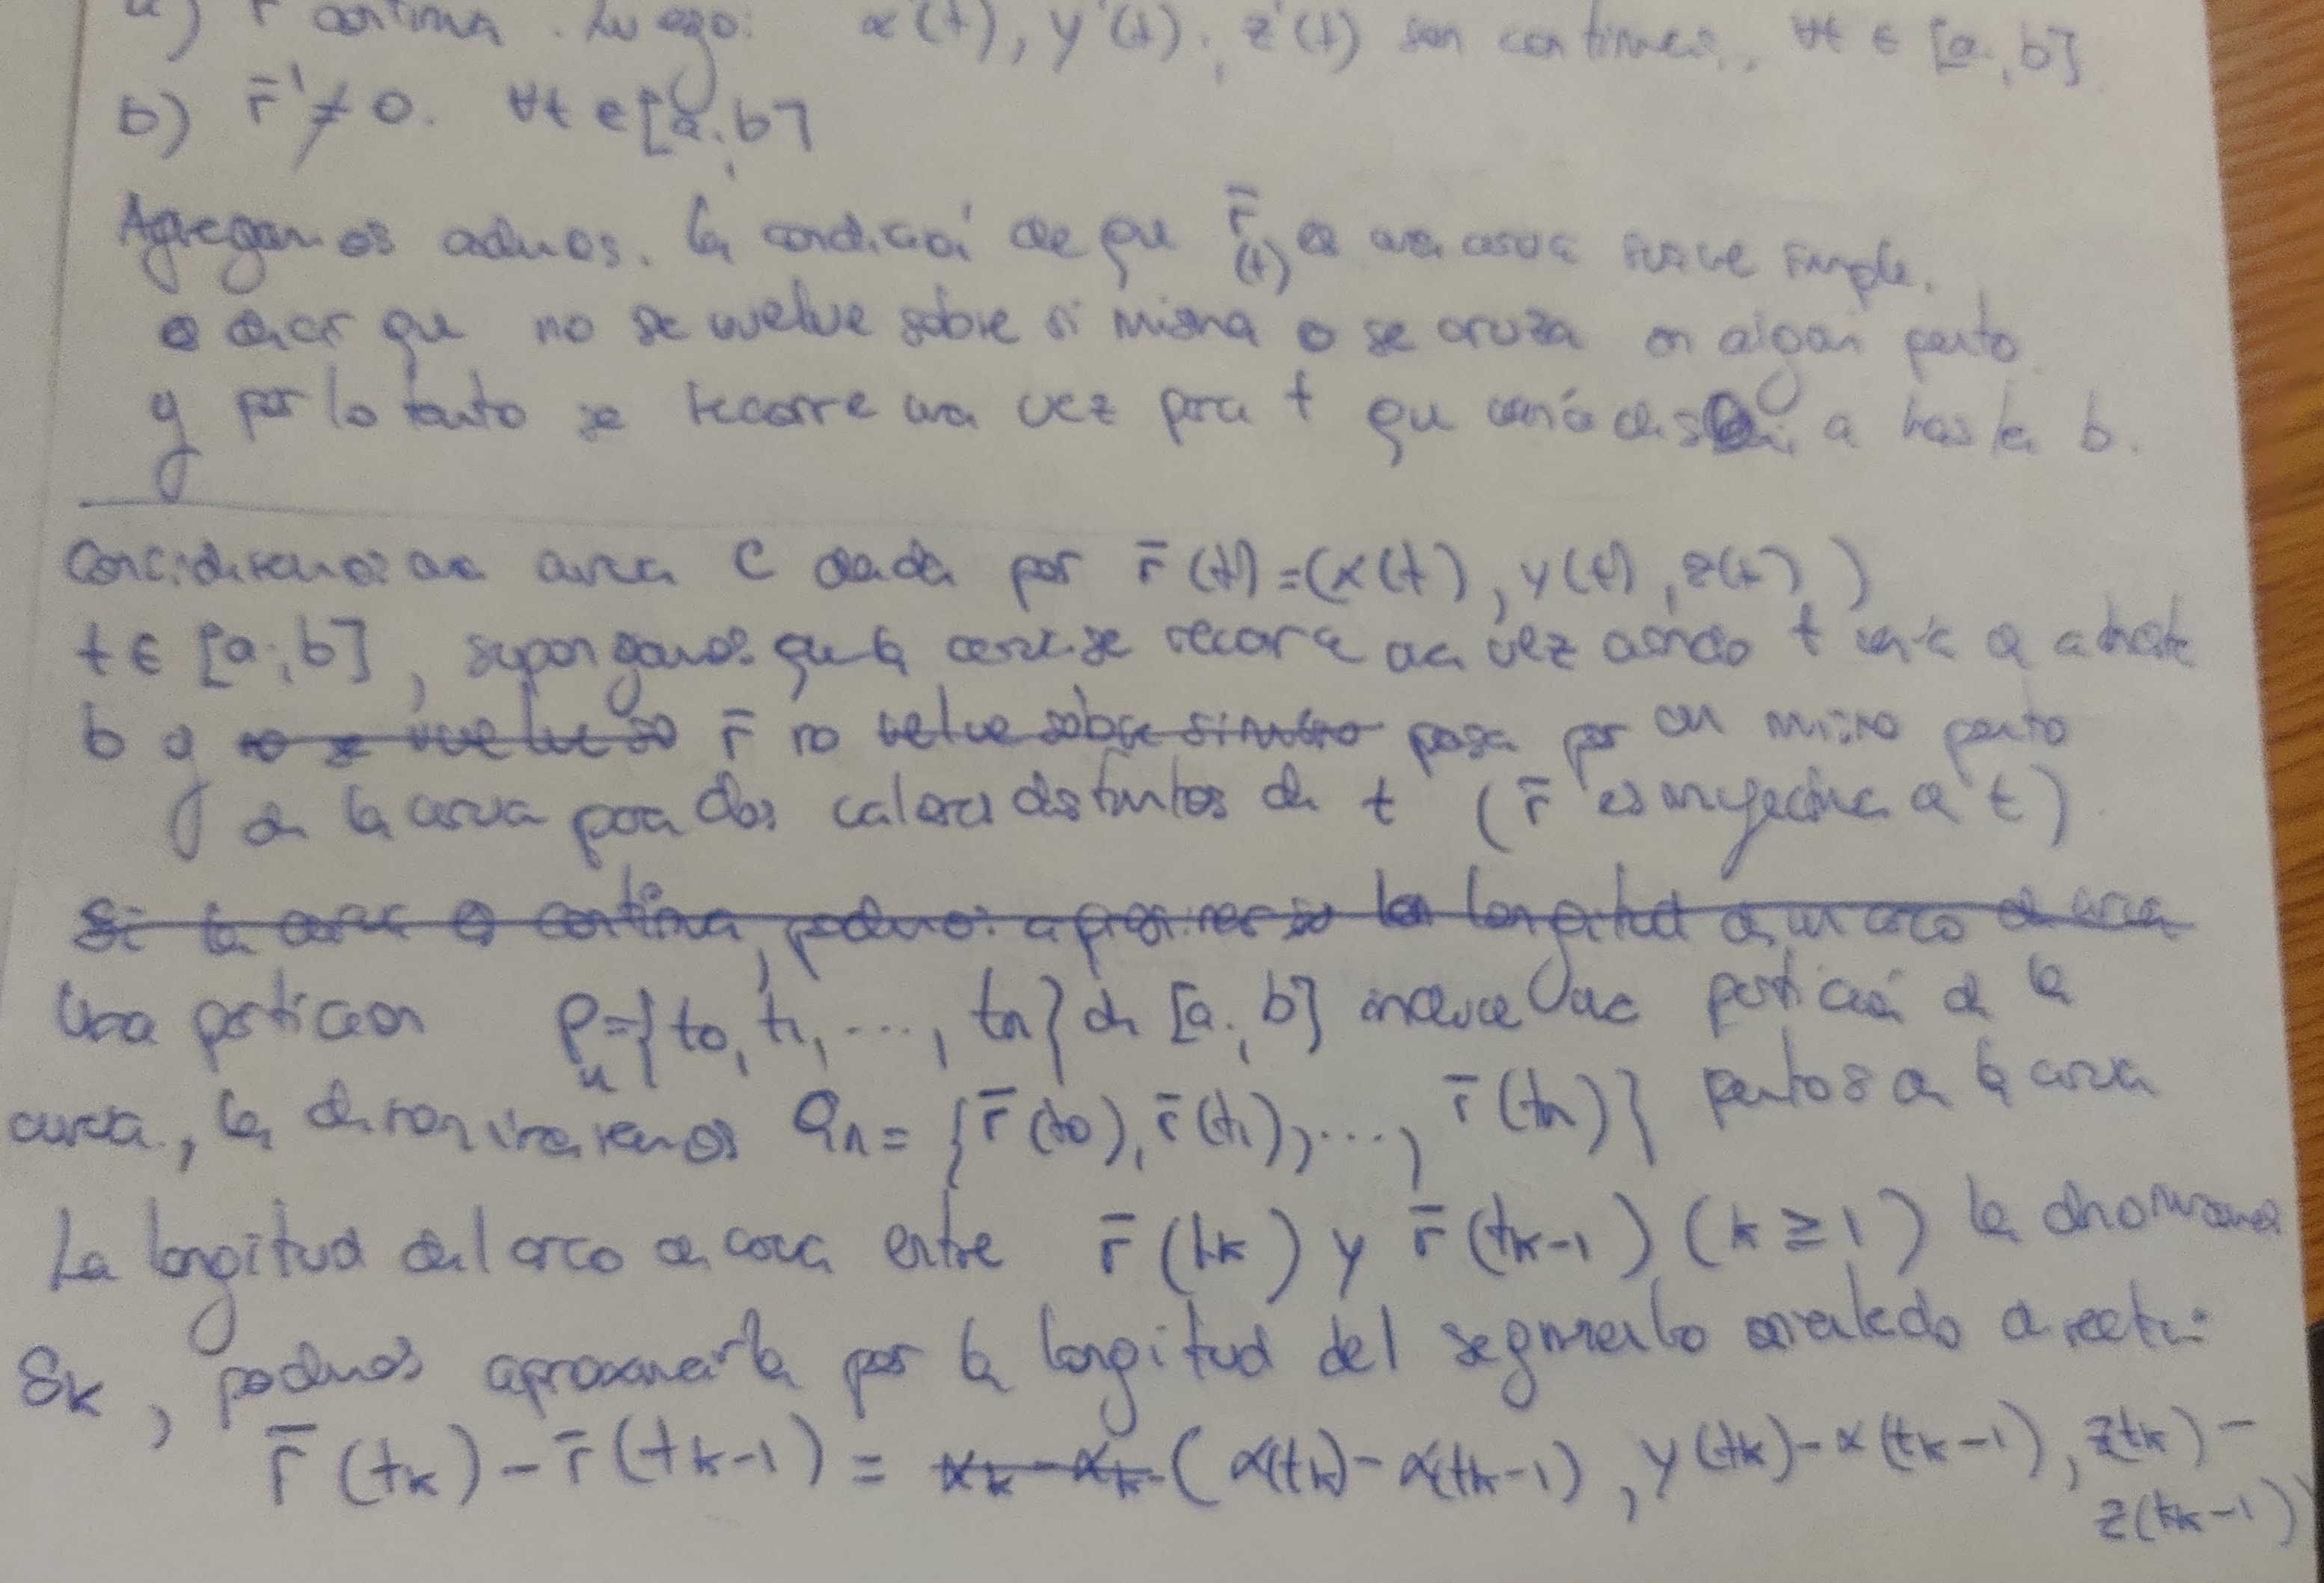 a) r̄' continua. Luego: x'(t), y'(t), z'(t) son continuas, ∀t ∈ [a, b]
b) r̄' ≠ 0. ∀t ∈ [a, b]
Agregamos además. la condición de que r̄(t) es una curva suave simple.
es decir que no se vuelve sobre si misma o se cruza en algún punto
y por lo tanto se recorre una vez para t que varía desde a hasta b.
Consideremos una curva C dada por r̄(t) = (x(t), y(t), z(t))
t ∈ [a, b], supongamos que la curva se recorre una vez cuando t varía de a hasta
b y ~~no se vuelve so~~ r̄ no ~~vuelve sobre si mismo~~ pasa por un mismo punto
de la curva para dos valores distintos de t (r̄ es inyectiva a t)
~~Si la curva es continua, podemos aproximar la longitud de un arco de curva~~
Una partición Pn = {t0, t1, ..., tn} de [a, b] induce una partición de la
curva, la denominaremos Qn = {r̄(t0), r̄(t1), ..., r̄(tn)} puntos de la curva
La longitud del arco de curva entre r̄(tk) y r̄(tk-1) (k ≥ 1) la denominamos
Sk, podemos aproximarla por la longitud del segmento orientado de recta:
r̄(tk) - r̄(tk-1) = ~~xk - xk~~ (x(tk) - x(tk-1), y(tk) - x(tk-1), z(tk) -
z(tk-1))